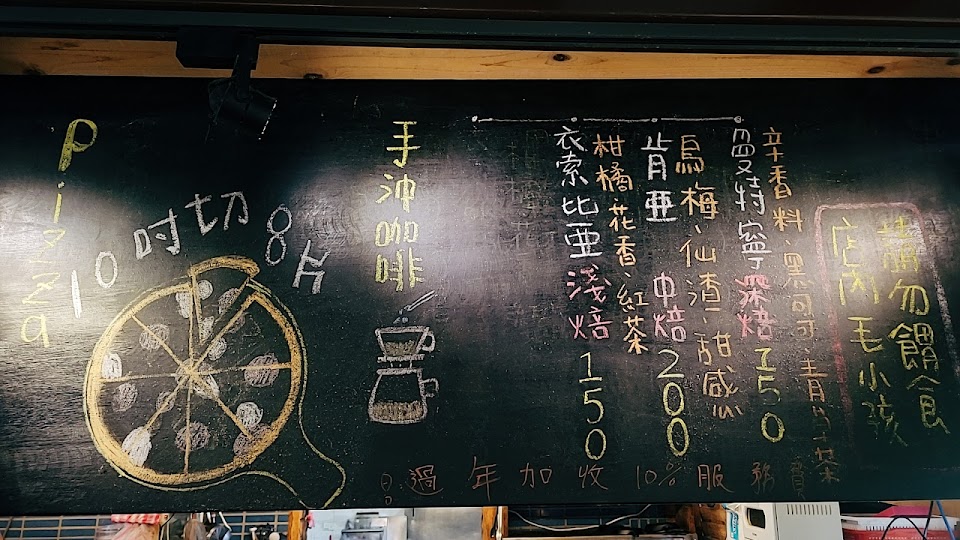 Pizza
10吋切8片
手沖咖啡
衣索比亞 淺焙 150
柑橘、花香、紅茶
肯亞 中焙 200
烏梅、仙渣、甜感
曼特寧 深焙 150
辛香料、黑可可
茶
店內毛小孩
請勿餵食
過年加收10%服務費